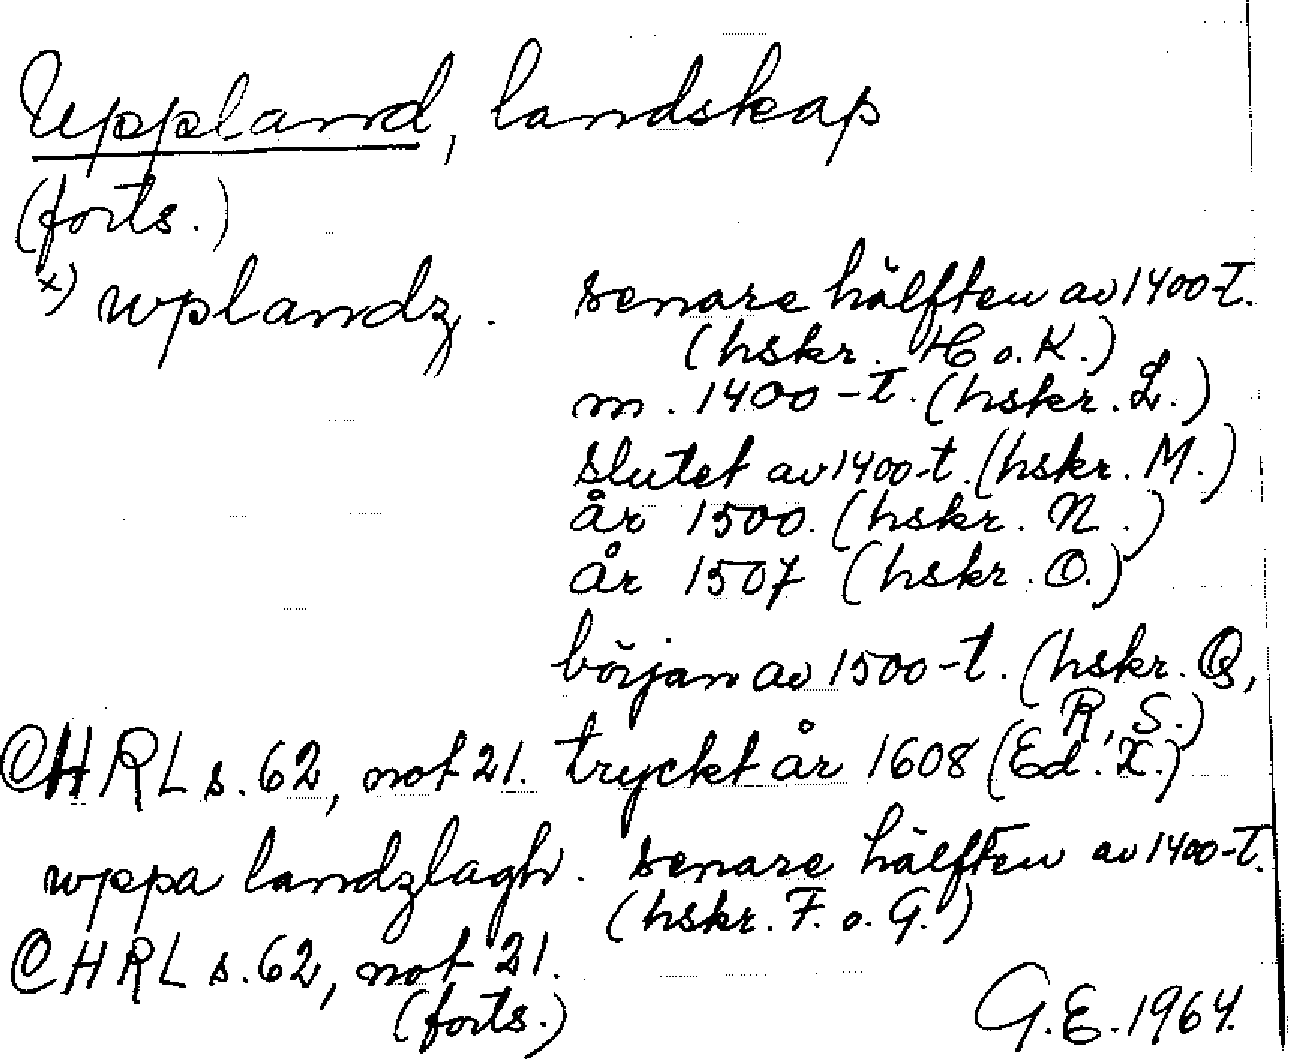 Uppland, landskap
(forts.)
x) wplandz. senare hälften av 1400-t.
(hskr. H o. K.)
m. 1400-t. (hskr. L.)
slutet av 1400-t. (hskr. M.)
år 1500. (hskr. N.)
år 1507 (hskr. O.)
början av 1500-t. (hskr. Q,
R, S.)
CHRL s. 62, not 21. tryckt år 1608 (Ed. X.)
wppa landzlagh. senare hälften av 1400-t.
(hskr. F. o. G.)
CHRL s. 62, not 21.
(forts.)
G.E. 1964.